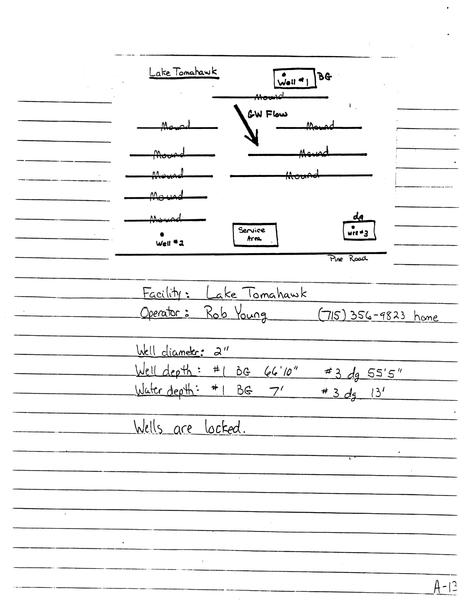 Lake Tomahawk
Well #1 BG
Mound
GW Flow
Mound Mound
Mound Mound
Mound Mound
Mound
Mound
dg
Well #2
Service Area
Well #3
Pine Road
Facility: Lake Tomahawk
Operator: Rob Young (715) 356-9823 home
Well diameter: 2"
Well depth: #1 BG 66'10" #3 dg 55'5"
Water depth: #1 BG 7' #3 dg 13'
Wells are locked.
A-13